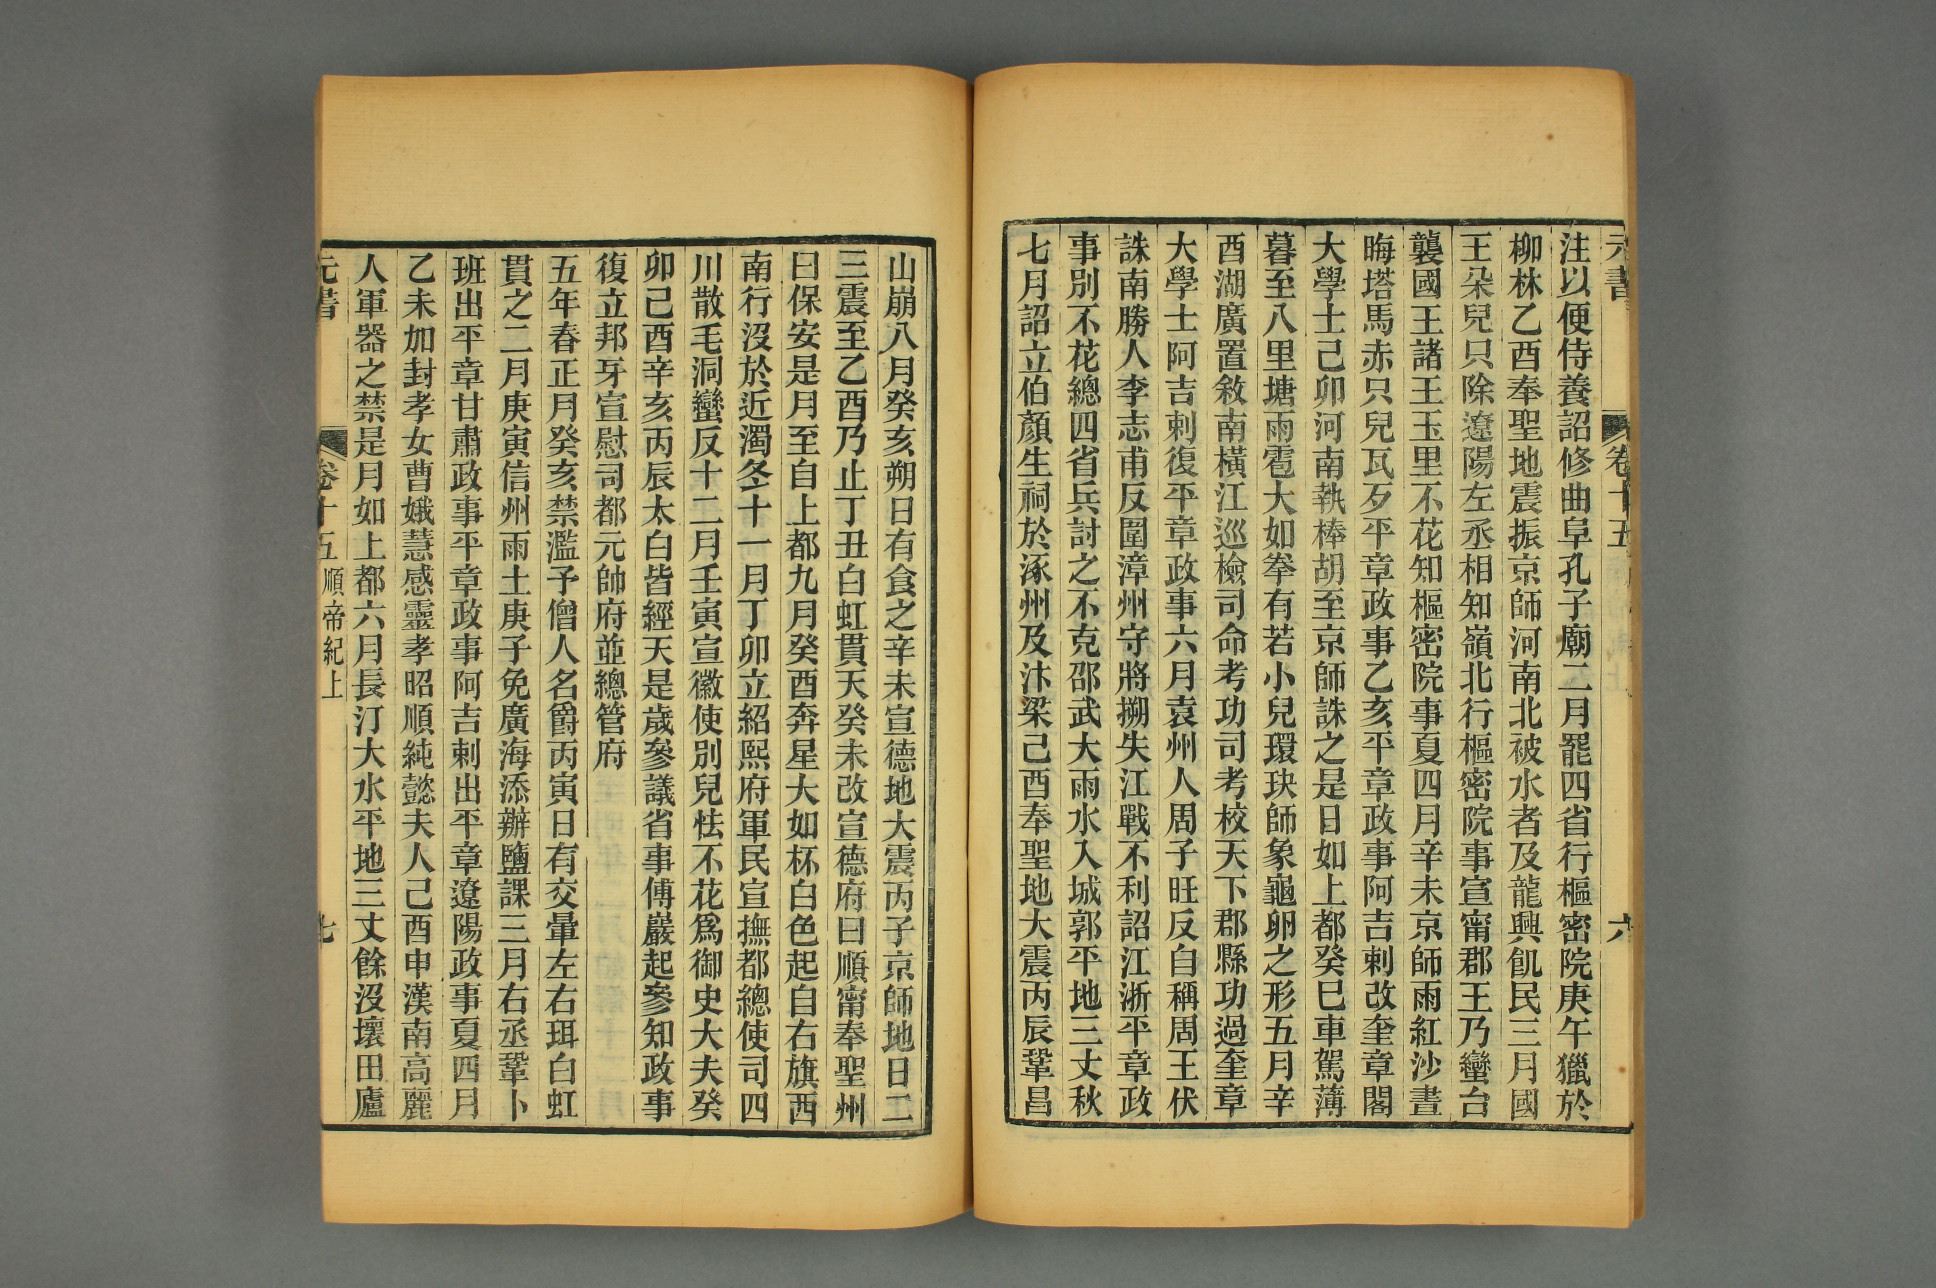 元書 卷十五 六
注以便侍養詔修曲阜孔子廟二月罷四省行樞密院庚午獵於
柳林乙酉奉聖地震振京師河南北被水者及龍興飢民三月國
王朵兒只除遼陽左丞相知嶺北行樞密院事宣甯郡王乃蠻台
襲國王諸王玉里不花知樞密院事夏四月辛未京師雨紅沙晝
晦塔馬赤只兒瓦歹平章政事乙亥平章政事阿吉剌改奎章閣
大學士己卯河南執棒胡至京師誅之是日如上都癸巳車駕薄
暮至八里塘雨雹大如拳有若小兒環玦師象龜卵之形五月辛
酉湖廣置敘南橫江巡檢司命考功司考校天下郡縣功過奎章
大學士阿吉剌復平章政事六月袁州人周子旺反自稱周王伏
誅南勝人李志甫反圍漳州守將搠失江戰不利詔江浙平章政
事別不花總四省兵討之不克邵武大雨水入城郭平地三丈秋
七月詔立伯顏生祠於涿州及汴梁己酉奉聖地大震丙辰鞏昌
山崩八月癸亥朔日有食之辛未宣德地大震丙子京師地日二
三震至乙酉乃止丁丑白虹貫天癸未改宣德府曰順甯奉聖州
曰保安是月至自上都九月癸酉奔星大如杯白色起自右旗西
南行沒於近濁冬十一月丁卯立紹熙府軍民宣撫都總使司四
川散毛洞蠻反十二月壬寅宣徽使別兒怯不花爲御史大夫癸
卯己酉辛亥丙辰太白皆經天是歲參議省事傅巖起參知政事
復立邦牙宣慰司都元帥府並總管府
五年春正月癸亥禁濫予僧人名爵丙寅日有交暈左右珥白虹
貫之二月庚寅信州雨土庚子免廣海添辦鹽課三月右丞鞏卜
班出平章甘肅政事平章政事阿吉剌出平章遼陽政事夏四月
乙未加封孝女曹娥慧感靈孝昭順純懿夫人己酉申漢南高麗
人軍器之禁是月如上都六月長汀大水平地三丈餘沒壞田廬
元書 卷十五 順帝紀上 七